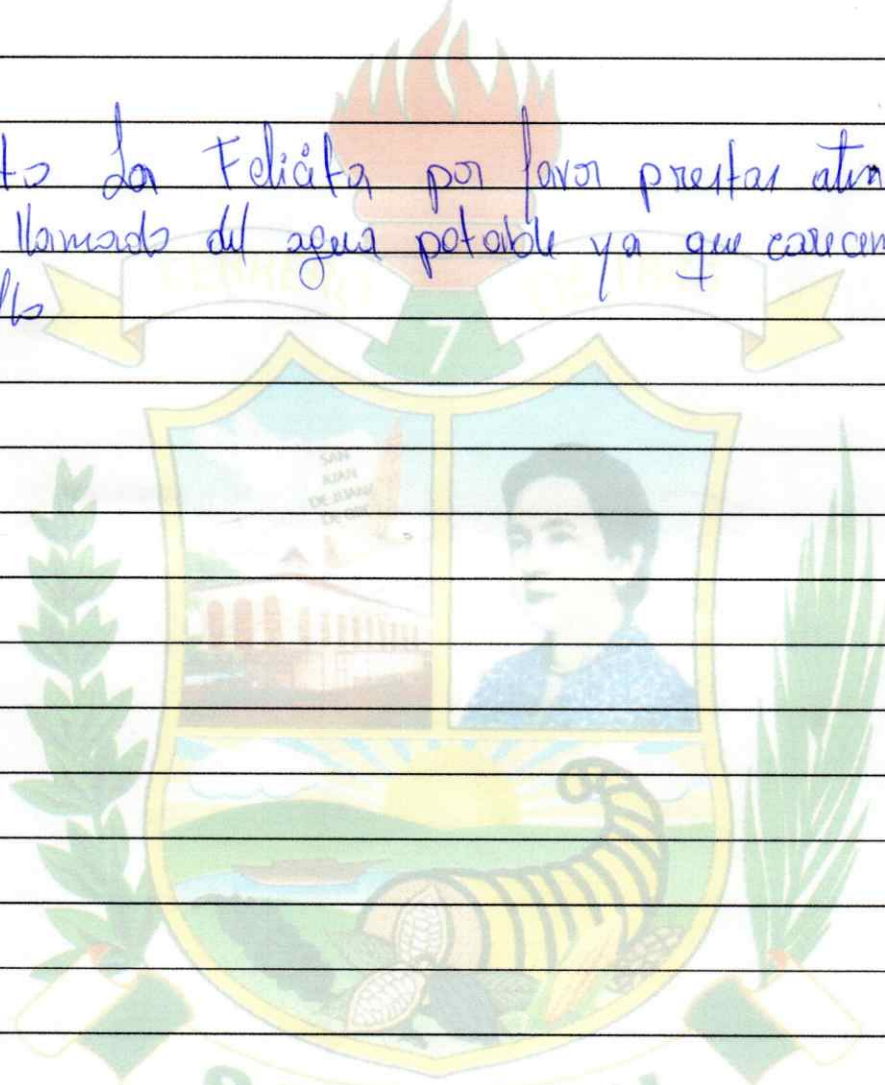 to La Felicita por favor prestar aten
llamado del agua potable ya que carecen
7
SAN
JUAN